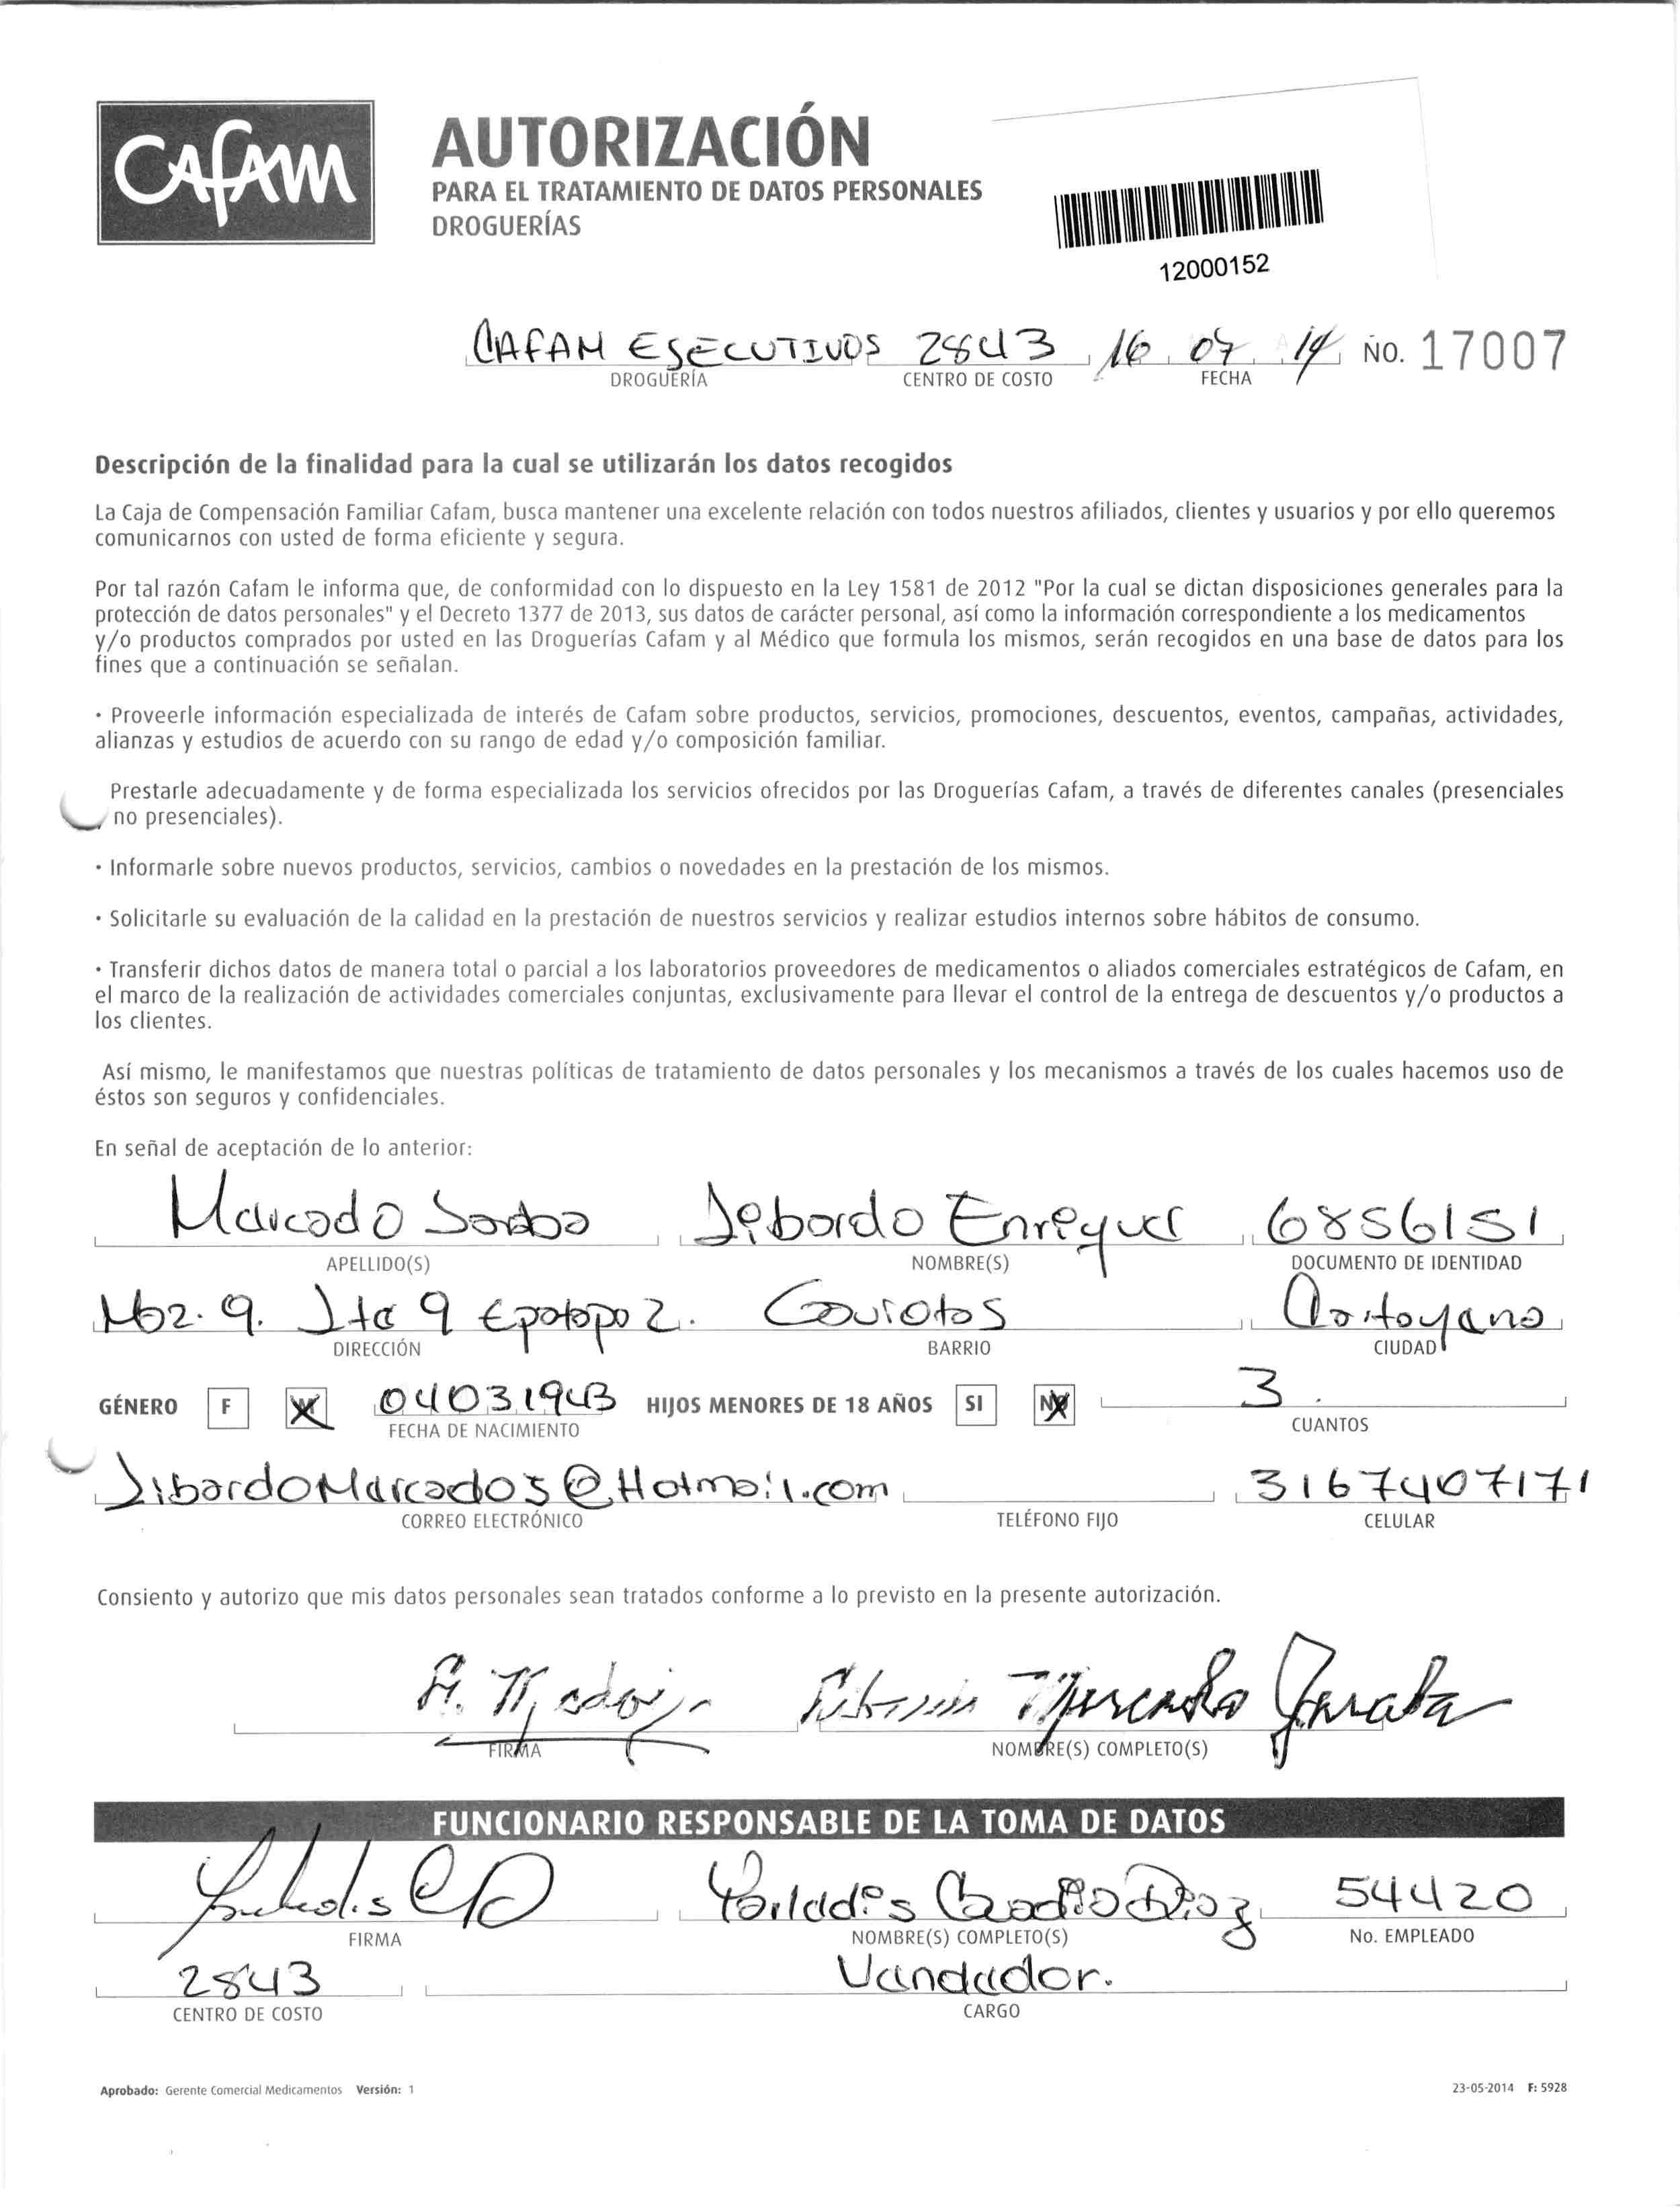 CAFAM
AUTORIZACIÓN
PARA EL TRATAMIENTO DE DATOS PERSONALES
DROGUERÍAS
12000152
CAFAM ESECUTIVOS 2843 16 07 14 NO. 17007
DROGUERÍA CENTRO DE COSTO FECHA
Descripción de la finalidad para la cual se utilizarán los datos recogidos
La Caja de Compensación Familiar Cafam, busca mantener una excelente relación con todos nuestros afiliados, clientes y usuarios y por ello queremos
comunicarnos con usted de forma eficiente y segura.
Por tal razón Cafam le informa que, de conformidad con lo dispuesto en la Ley 1581 de 2012 "Por la cual se dictan disposiciones generales para la
protección de datos personales" y el Decreto 1377 de 2013, sus datos de carácter personal, así como la información correspondiente a los medicamentos
y/o productos comprados por usted en las Droguerías Cafam y al Médico que formula los mismos, serán recogidos en una base de datos para los
fines que a continuación se señalan.
· Proveerle información especializada de interés de Cafam sobre productos, servicios, promociones, descuentos, eventos, campañas, actividades,
alianzas y estudios de acuerdo con su rango de edad y/o composición familiar.
Prestarle adecuadamente y de forma especializada los servicios ofrecidos por las Droguerías Cafam, a través de diferentes canales (presenciales
no presenciales).
· Informarle sobre nuevos productos, servicios, cambios o novedades en la prestación de los mismos.
· Solicitarle su evaluación de la calidad en la prestación de nuestros servicios y realizar estudios internos sobre hábitos de consumo.
· Transferir dichos datos de manera total o parcial a los laboratorios proveedores de medicamentos o aliados comerciales estratégicos de Cafam, en
el marco de la realización de actividades comerciales conjuntas, exclusivamente para llevar el control de la entrega de descuentos y/o productos a
los clientes.
Así mismo, le manifestamos que nuestras políticas de tratamiento de datos personales y los mecanismos a través de los cuales hacemos uso de
éstos son seguros y confidenciales.
En señal de aceptación de lo anterior:
Marcado 6856151
APELLIDO(S) NOMBRE(S) DOCUMENTO DE IDENTIDAD
Mz. 9. Lte 9 etapa 2.
DIRECCIÓN BARRIO CIUDAD
GÉNERO F M 04031943 HIJOS MENORES DE 18 AÑOS SI NO 3
FECHA DE NACIMIENTO CUANTOS
LibardoMarcados@Hotmail.com 3167407171
CORREO ELECTRÓNICO TELÉFONO FIJO CELULAR
Consiento y autorizo que mis datos personales sean tratados conforme a lo previsto en la presente autorización.
Mercado Zarata
FIRMA NOMBRE(S) COMPLETO(S)
FUNCIONARIO RESPONSABLE DE LA TOMA DE DATOS
Diaz 54420
FIRMA NOMBRE(S) COMPLETO(S) No. EMPLEADO
2843 Vandador.
CENTRO DE COSTO CARGO
Aprobado: Gerente Comercial Medicamentos Versión: 1 23-05-2014 F: 5928